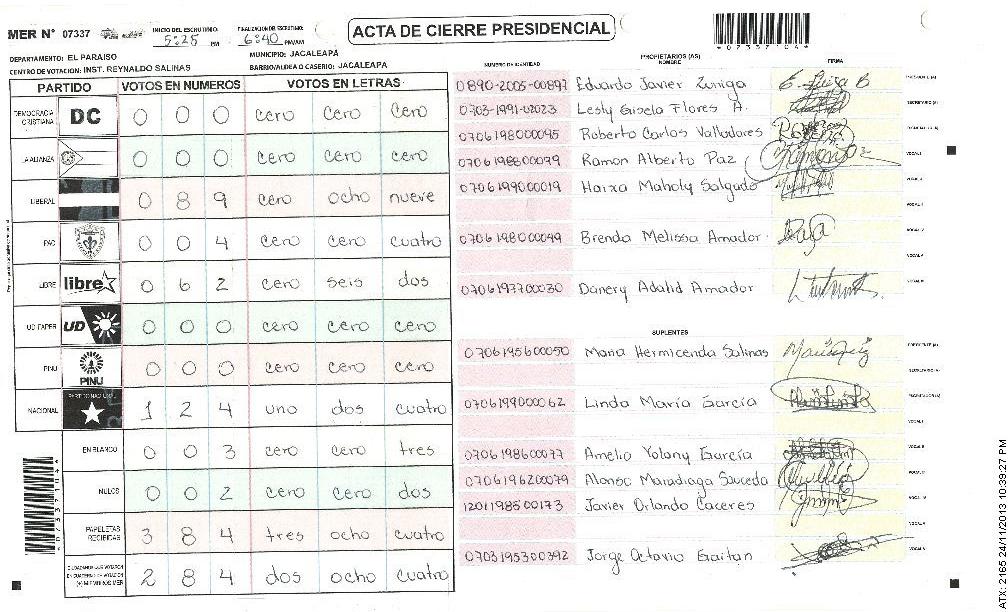 MER N° 07337
INICIO DEL ESCRUTINIO: 5:25 PM
FINALIZACION DE ESCRUTINIO: 6:40 PM/AM
ACTA DE CIERRE PRESIDENCIAL
*07337 04*
DEPARTAMENTO: EL PARAISO
MUNICIPIO: JACALEAPA
CENTRO DE VOTACION: INST. REYNALDO SALINAS
BARRIO/ALDEA O CASERIO: JACALEAPA
PARTIDO VOTOS EN NUMEROS VOTOS EN LETRAS
DEMOCRACIA CRISTIANA DC 0 0 0 cero cero cero
LA ALIANZA 0 0 0 cero cero cero
LIBERAL 0 8 9 cero ocho nueve
PAC 0 0 4 cero cero cuatro
LIBRE libre 0 6 2 cero seis dos
UD FAPER UD 0 0 0 cero cero cero
PINU PINU 0 0 0 cero cero cero
NACIONAL PARTIDO NACIONAL 1 2 4 uno dos cuatro
EN BLANCO 0 0 3 cero cero tres
NULOS 0 0 2 cero cero dos
PAPELETAS RECIBIDAS 3 8 4 tres ocho cuatro
CIUDADANOS QUE VOTARON EN CUADERNO DE VOTACION (+) MIEMBROS MER 2 8 4 dos ocho cuatro
NUMERO DE IDENTIDAD PROPIETARIOS (AS) NOMBRE FIRMA
0890-2005-00897 Eduardo Javier Zuniga PRESIDENTE (A)
0703-1991-02023 Lesly Gisela Flores A. SECRETARIO (A)
0706198000095 Roberto Carlos Valladares ESCRUTADOR (A)
0706198800079 Ramon Alberto Paz VOCAL I
0706199000019 Haixa Maholy Salgado VOCAL II
VOCAL III
0706198000049 Brenda Melissa Amador VOCAL IV
VOCAL V
0706197700030 Danery Adalid Amador VOCAL VI
SUPLENTES
0706195600050 Maria Hermicenda Salinas PRESIDENTE (A)
SECRETARIO (A)
0706199000062 Linda María García ESCRUTADOR (A)
VOCAL I
0706198600077 Amelio Yolany García VOCAL II
0706196200079 Alonso Maradiaga Sauceda VOCAL III
1201198500173 Javier Orlando Caceres VOCAL IV
VOCAL V
0703195300392 Jorge Octavio Gaitan VOCAL VI
ATX: 2165 24/11/2013 10:39:27 PM